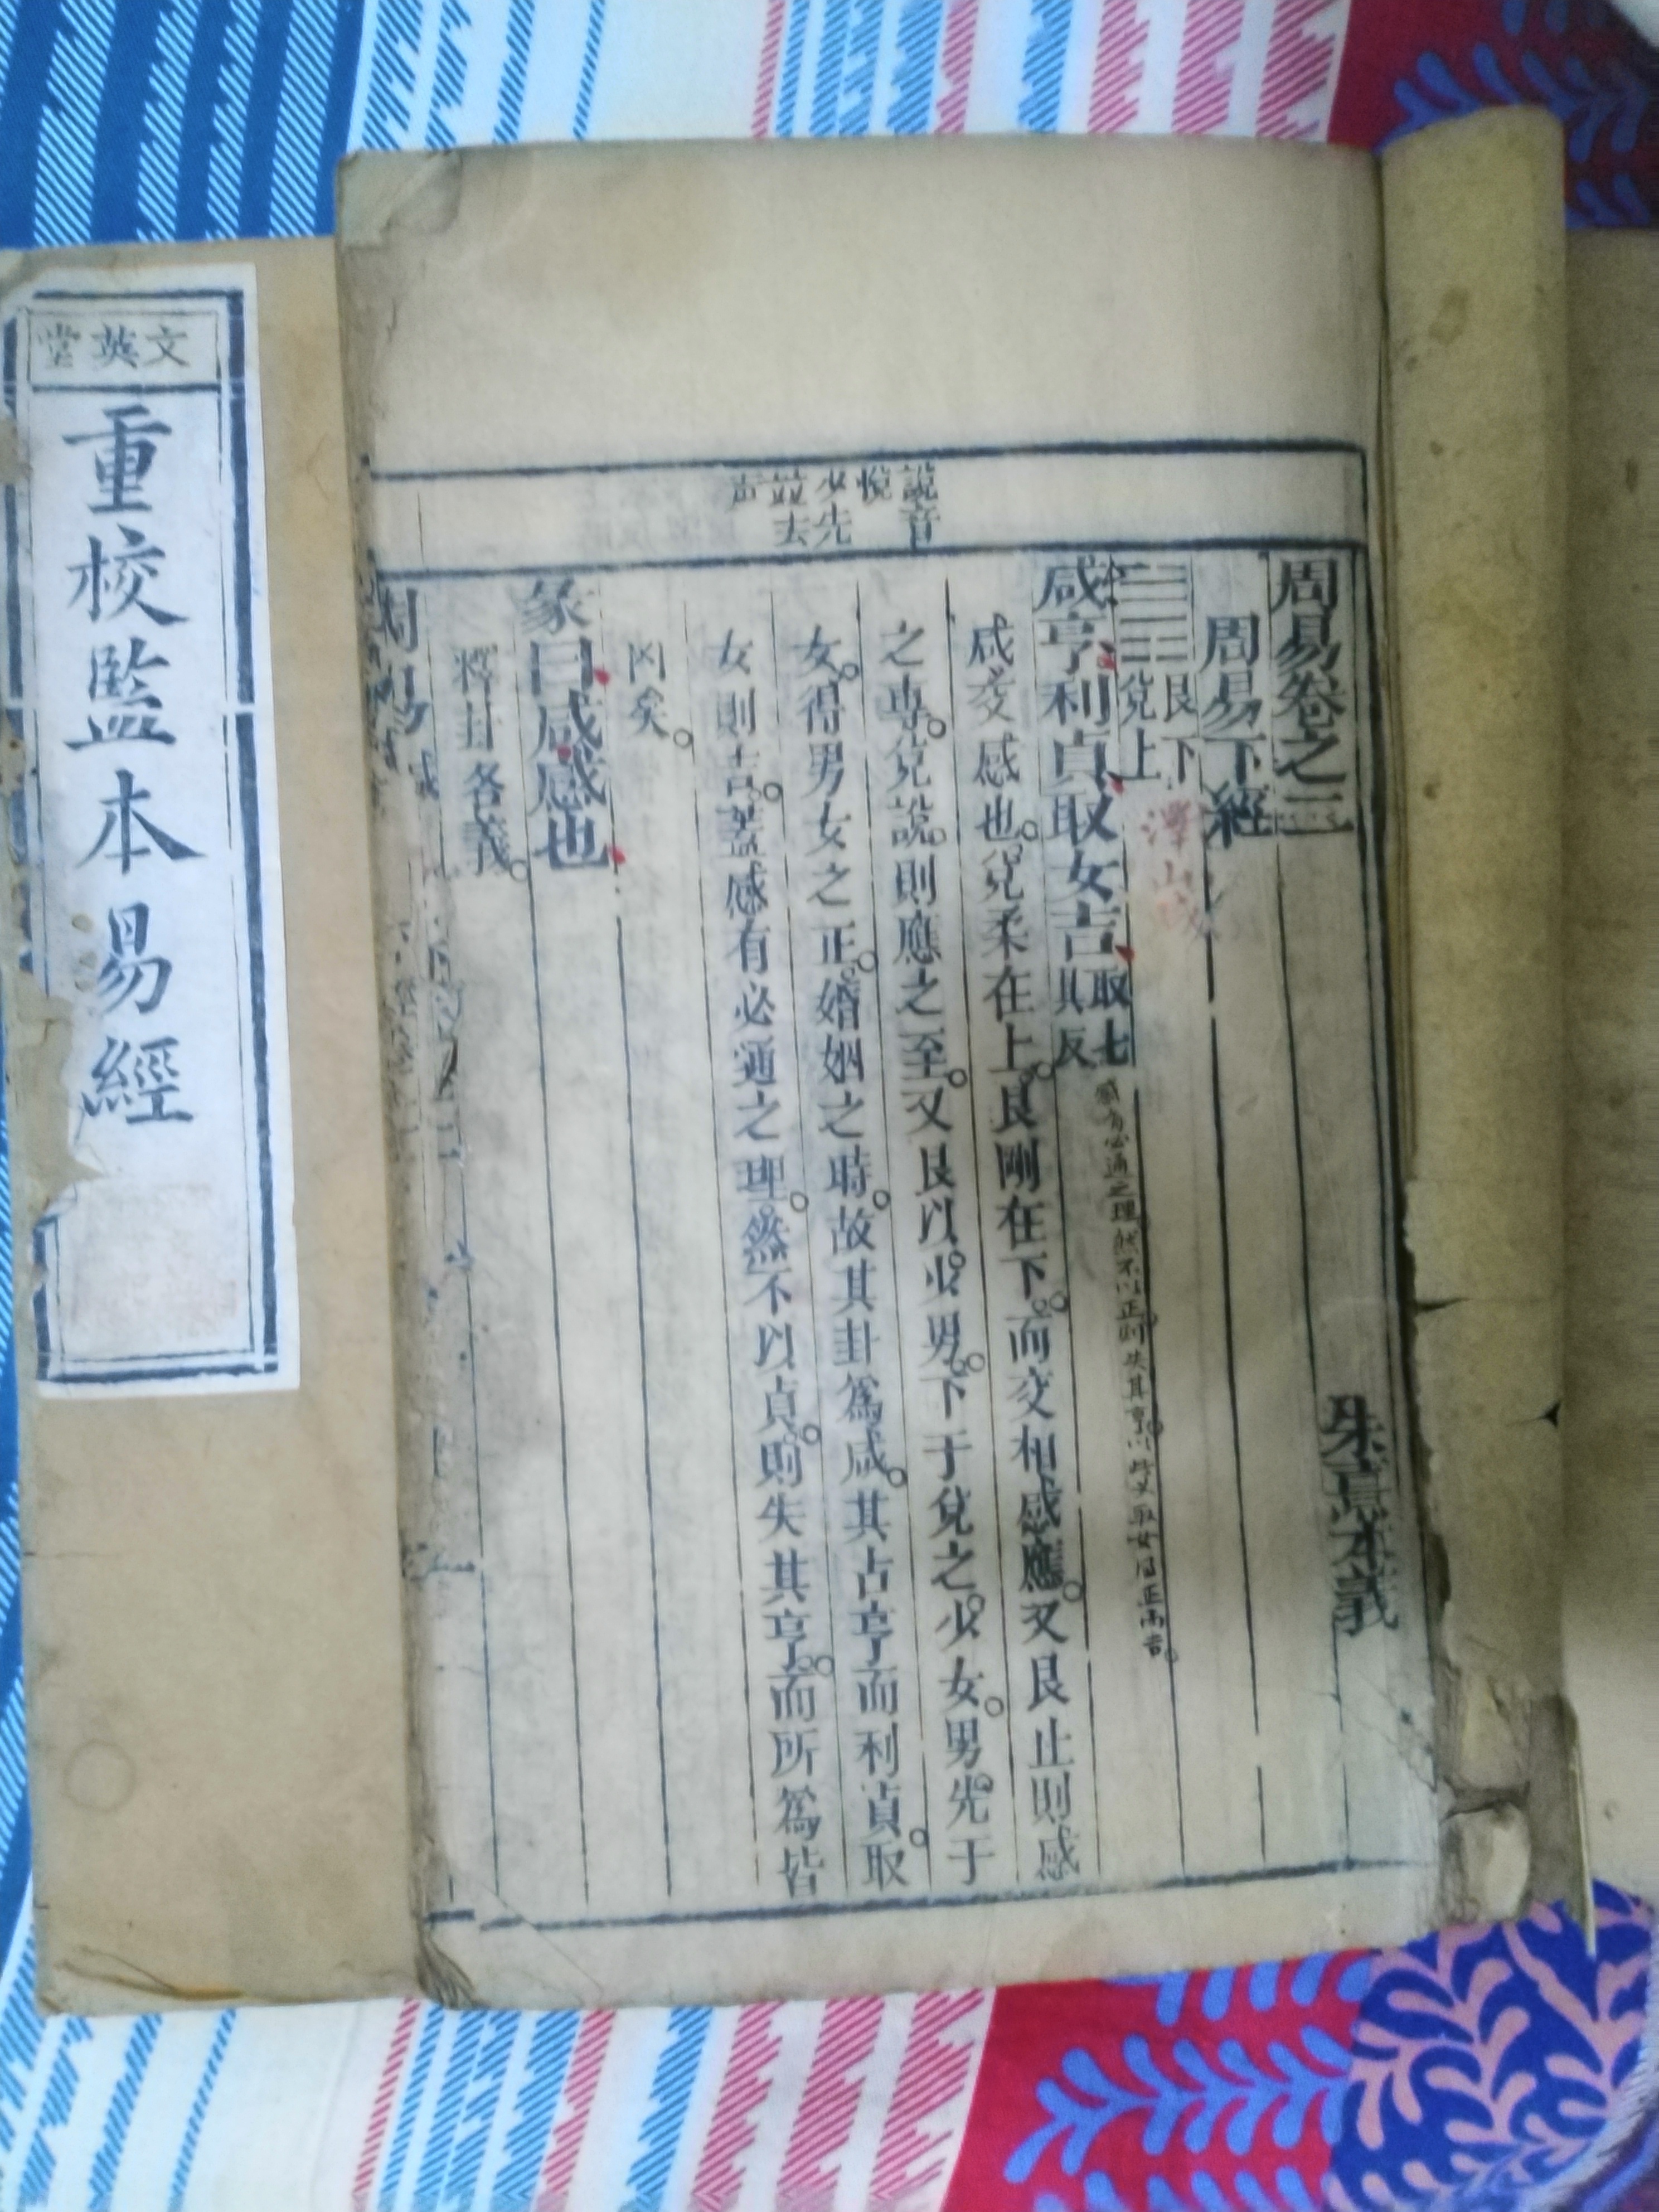 文英堂
重校監本易經
說音
悅
少先
並去
声
周易卷之二
朱熹本義
周易下經
艮下
兌上
澤山咸
咸亨利貞取女吉
取七
具反
感有必通之理然不以正則失其亨
取女

咸交感也兌柔在上艮剛在下而交相感應又艮止則感
之專兌說則應之至又艮以少男下于兌之少女男先于
女得男女之正婚姻之時故其卦爲咸其占亨而利貞取
女則吉蓋感有必通之理然不以貞則失其亨而所爲皆
凶矣
彖曰咸感也
釋卦名義